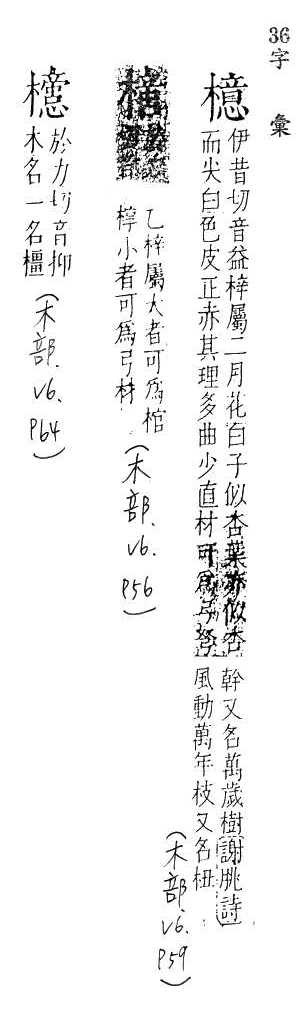 36字彙
檍
伊昔切音益梓屬二月花白子似杏葉亦似杏
而尖白色皮正赤其理多曲少直材可為弓弩
幹又名萬歲樹謝朓詩
風動萬年枝又名杻
(木部. V6. P59)
乙梓屬大者可爲棺
椁小者可爲弓材
(木部. V6. P56)
檍
於力切音抑
木名一名橿
(木部. V6. P64)